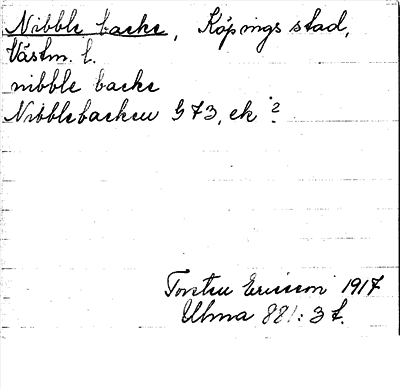 Nibble backe, Köpings stad,
Västm. l.
nibble backe
Nibblebacken G73, ek ?
Torsten Ericsson 1917
Ulma 881:3 f.